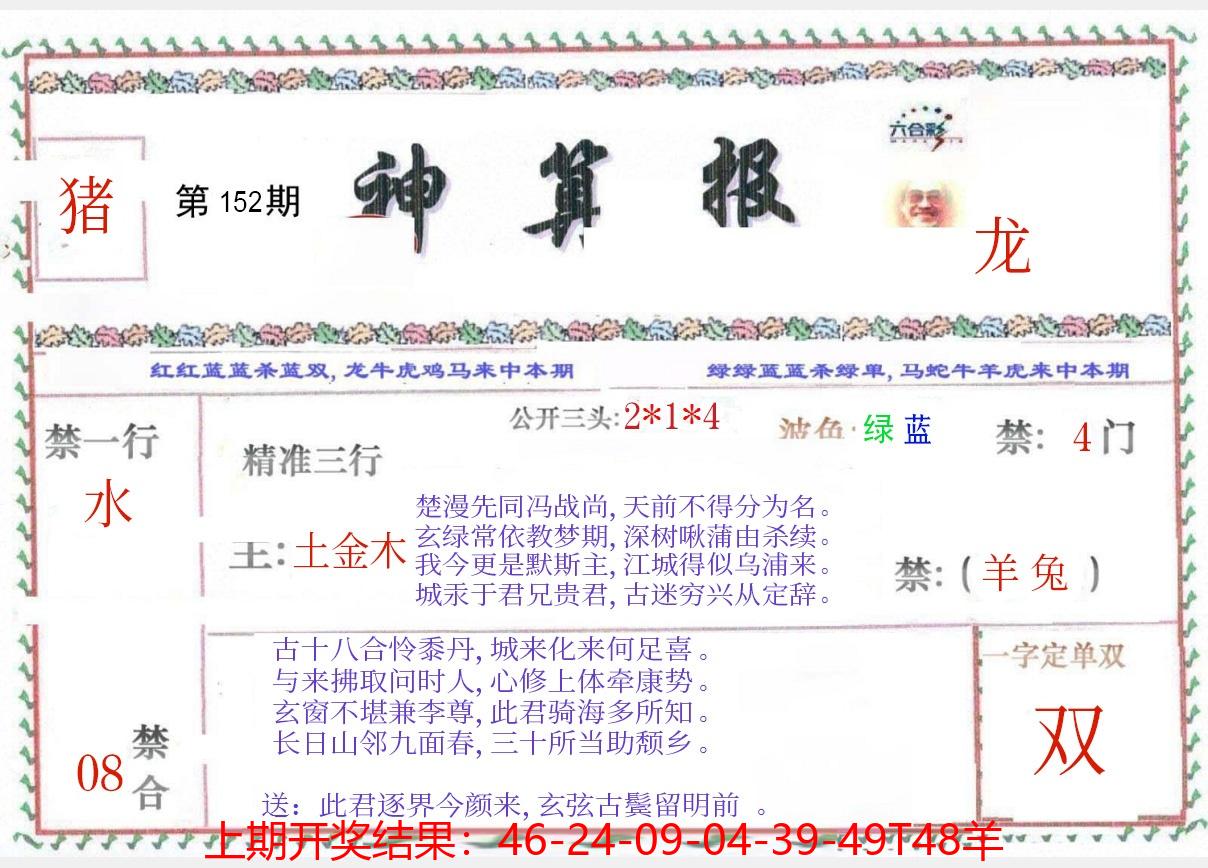 六合彩
猪
第152期
神算报
龙
红红蓝蓝杀蓝双,龙牛虎鸡马来中本期
绿绿蓝蓝杀绿单,马蛇牛羊虎来中本期
公开三头:2*1*4
波色:绿 蓝
禁: 4门
禁一行
水
精准三行
主:土金木
楚漫先同冯战尚,天前不得分为名。
玄绿常依教梦期,深树啾蒲由杀续。
我今更是默斯主,江城得似乌浦来。
城汞于君兄贵君,古迷穷兴从定辞。
禁:(羊 兔)
古十八合怜黍丹,城来化来何足喜。
与来拂取问时人,心修上体牵康势。
玄窗不堪兼李尊,此君骑海多所知。
长日山邻九面春,三十所当助颓乡。
送：此君逐界今颜来,玄弦古鬓留明前 。
08
禁合
一字定单双
双
上期开奖结果：46-24-09-04-39-49T48羊